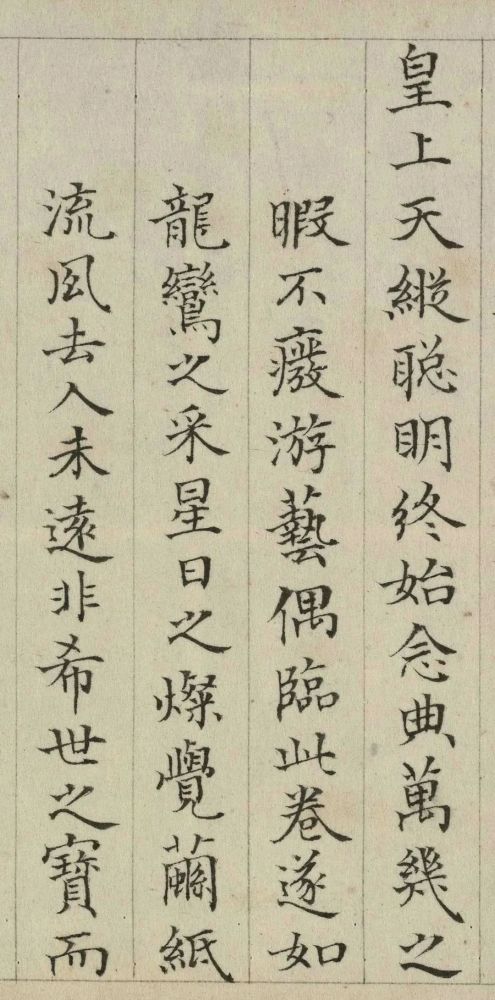 皇上天縱聡明終始念典萬幾之
暇不癈游藝偶臨此卷遂如
龍鸞之采星日之燦覺繭紙
流風去人未遠非希世之寶而